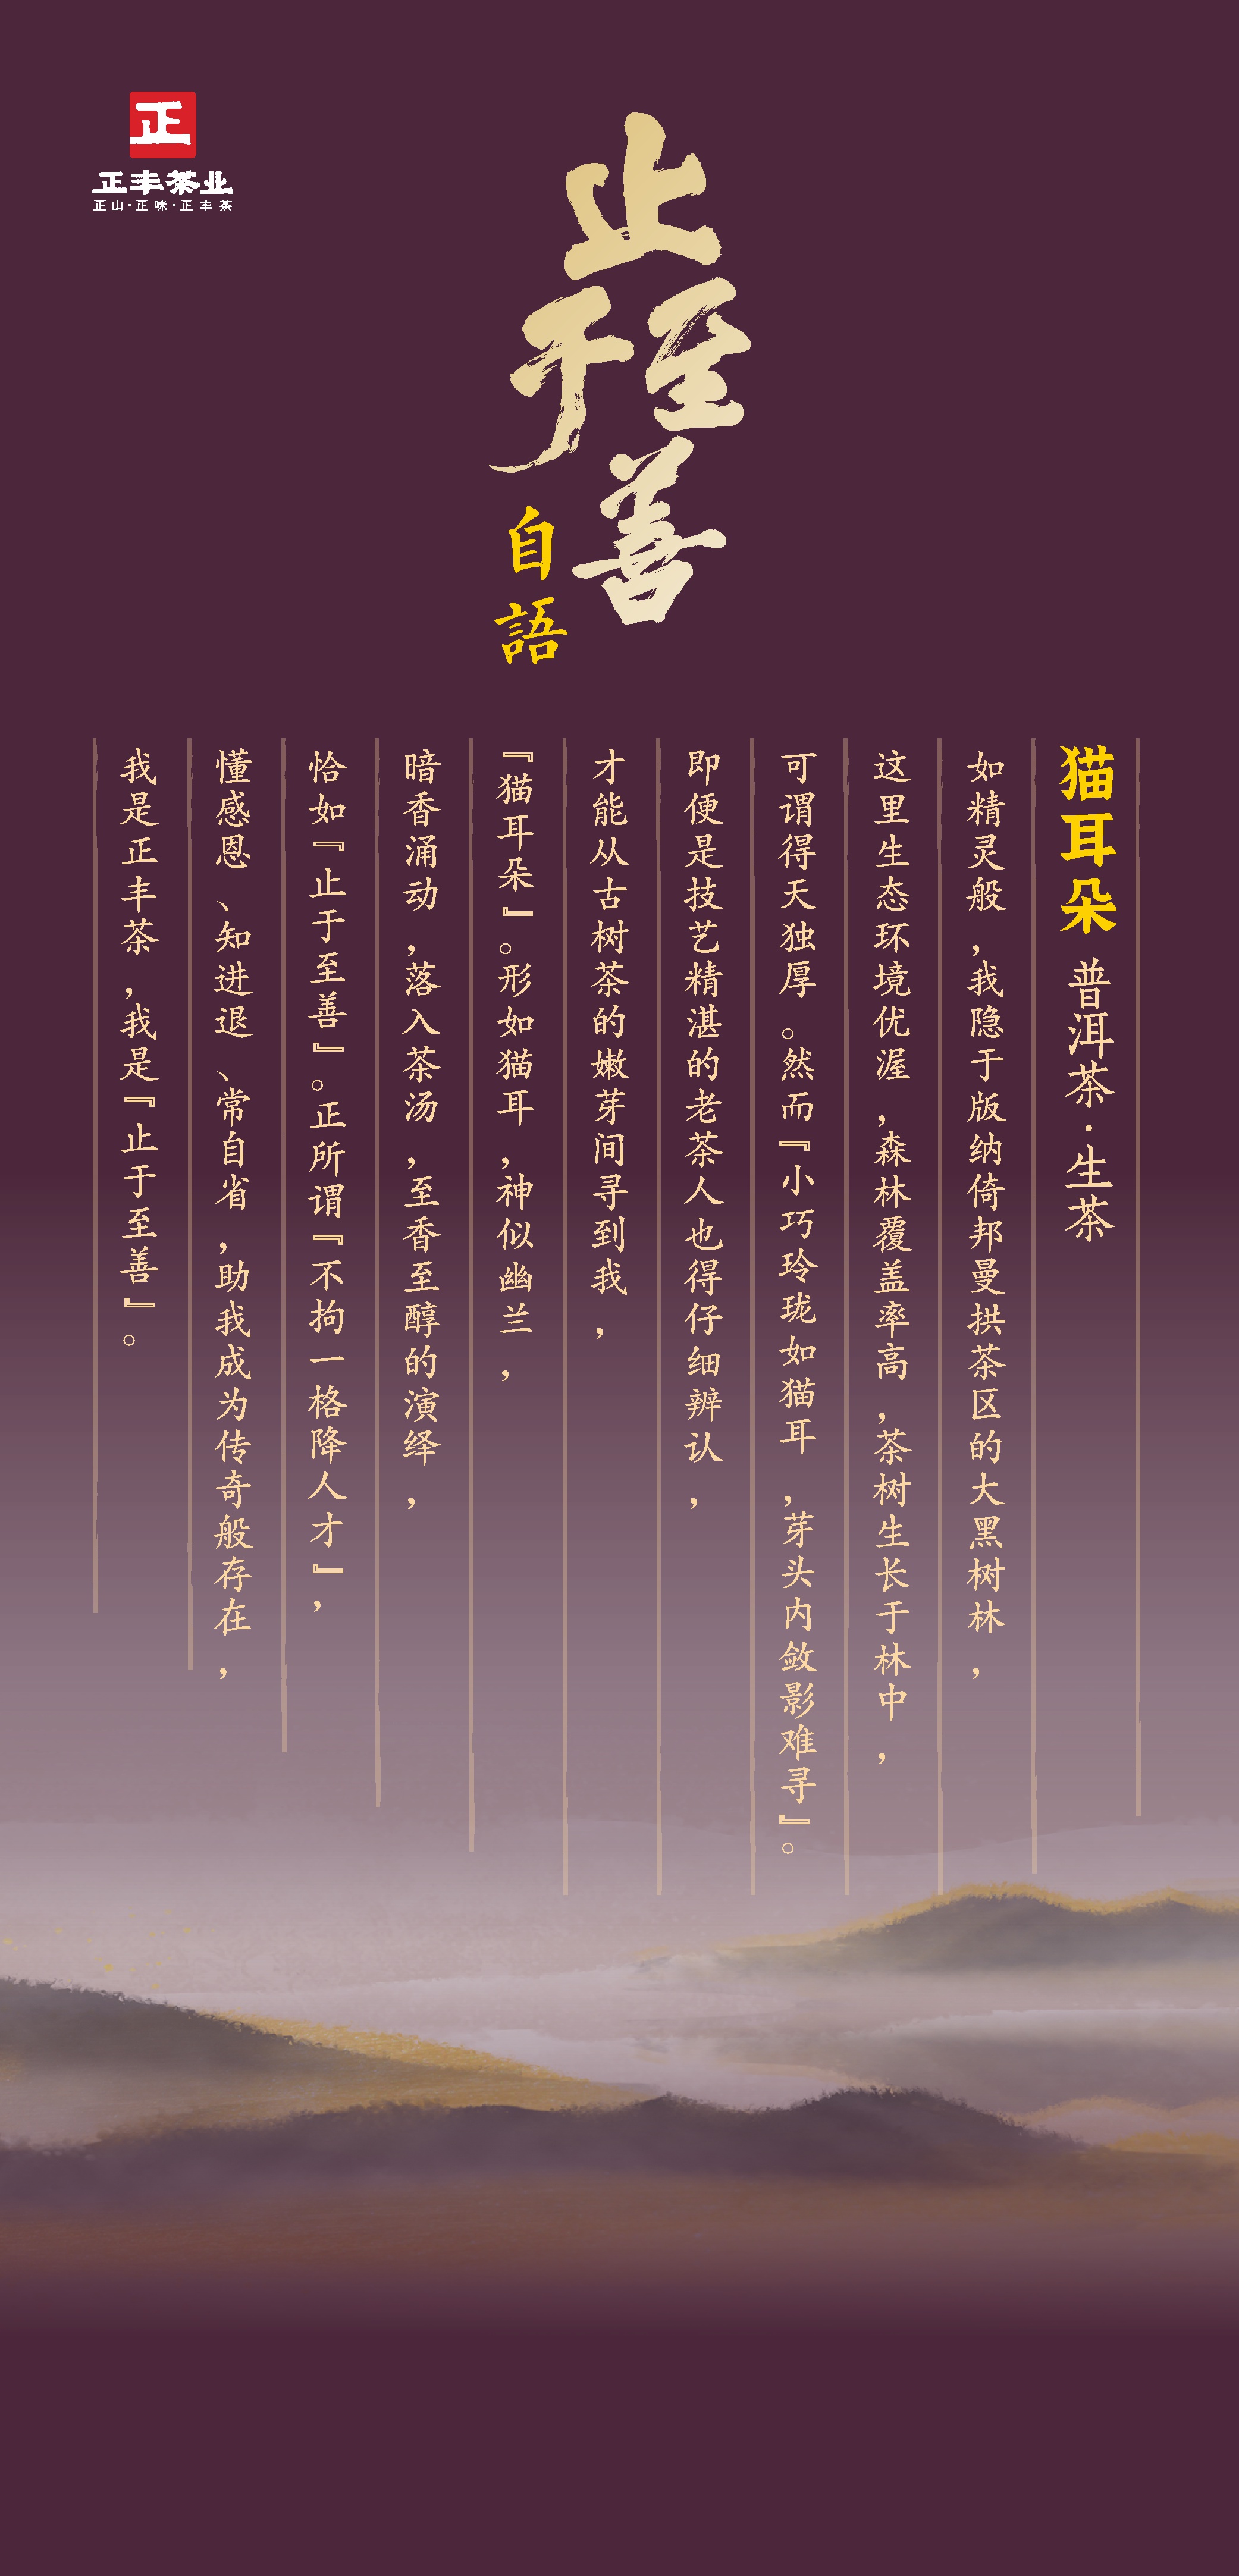 正
正丰茶业
正山·正味·正丰茶
止于至善
自語
猫耳朵 普洱茶·生茶
如精灵般，我隐于版纳倚邦曼拱茶区的大黑树林，
这里生态环境优渥，森林覆盖率高，茶树生长于林中，
可谓得天独厚。然而『小巧玲珑如猫耳，芽头内敛影难寻』。
即便是技艺精湛的老茶人也得仔细辨认，
才能从古树茶的嫩芽间寻到我，
『猫耳朵』。形如猫耳，神似幽兰，
暗香涌动，落入茶汤，至香至醇的演绎，
恰如『止于至善』。正所谓『不拘一格降人才』，
懂感恩、知进退、常自省，助我成为传奇般存在，
我是正丰茶，我是『止于至善』。